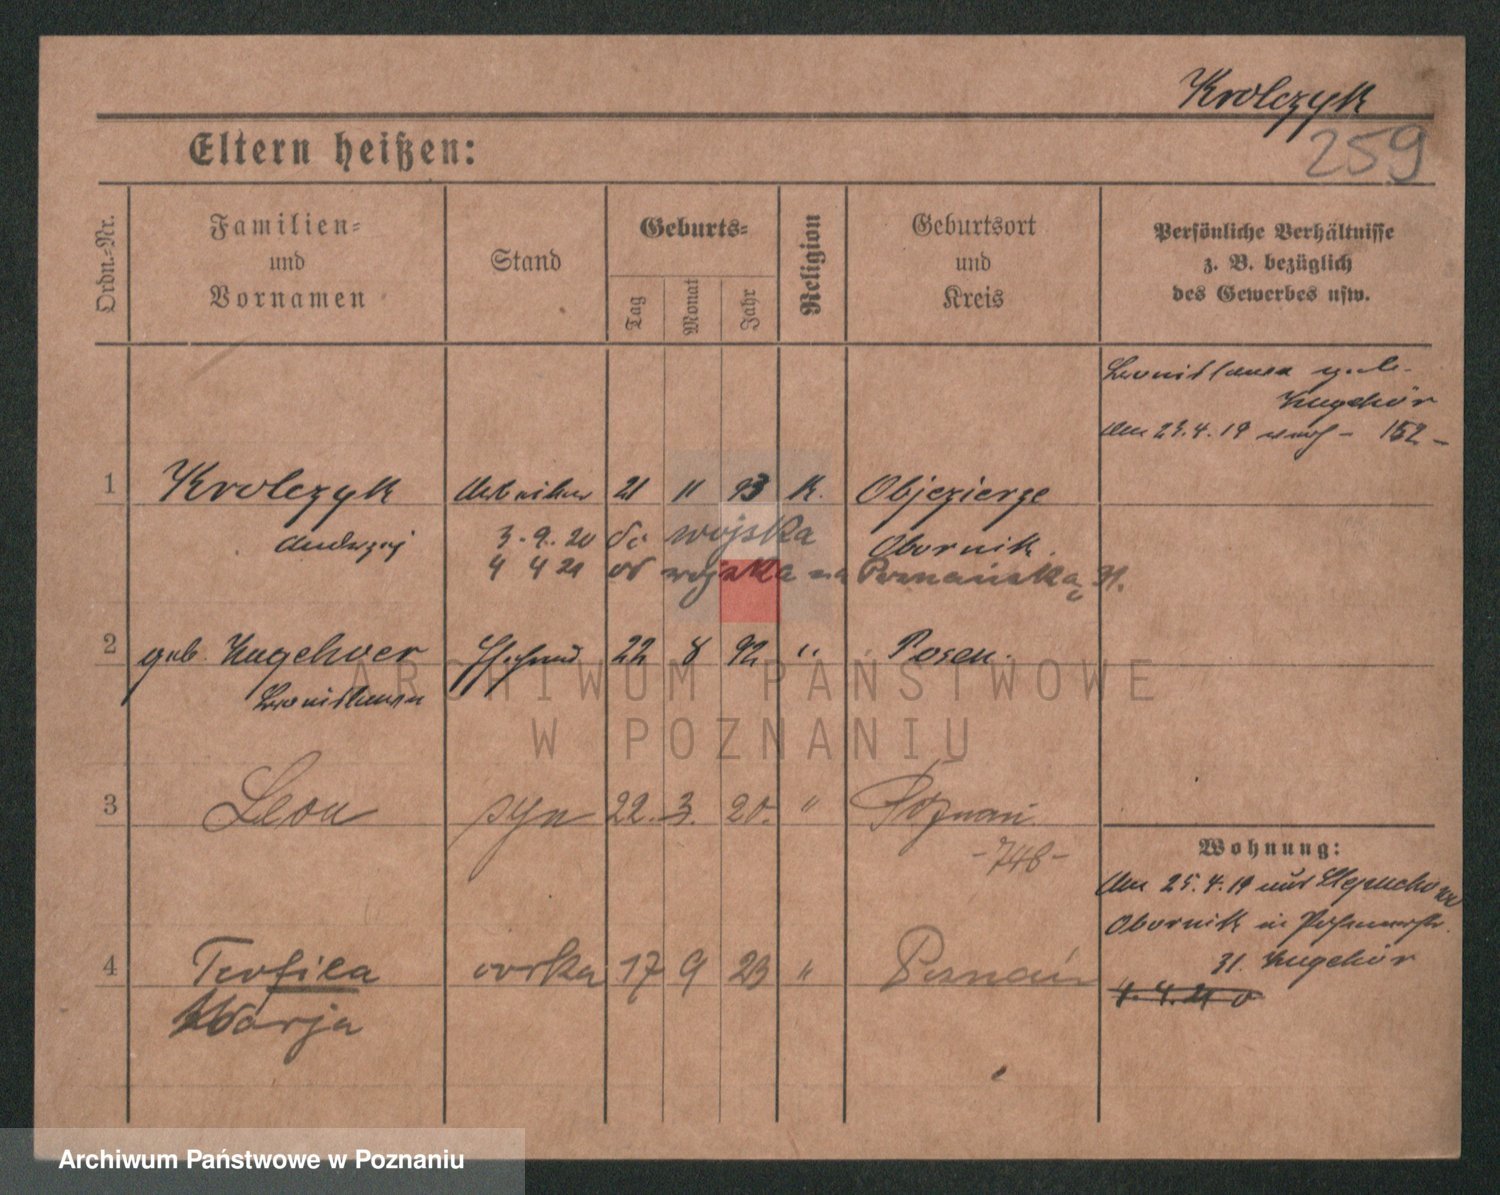 Krolczyk
259
Eltern heißen:
Ordn.-Nr.
Familien-
und
Vornamen
Stand
Geburts-
Tag
Monat
Jahr
Religion
Geburtsort
und
Kreis
Persönliche Verhältnisse
z. B. bezüglich
des Gewerbes usw.
geb.
Am 23.4.19 - 152 -
1 Krolczyk 21 11 93 K. Objezierze
Andrzej 3.9.20 do wojska Obornik.
4 4 21 od wojska na Poznańska 31.
2 geb. 22 8 92 " Posen.
3 Leon syn 22. 3. 20. " Poznań
- 748 -
Wohnung:
Am 25.4.19
Obornik in
31.
4 Teofila córka 17 9 23 " Poznań
Marja
4.4.21
ARCHIWUM PAŃSTWOWE
W POZNANIU
Archiwum Państwowe w Poznaniu